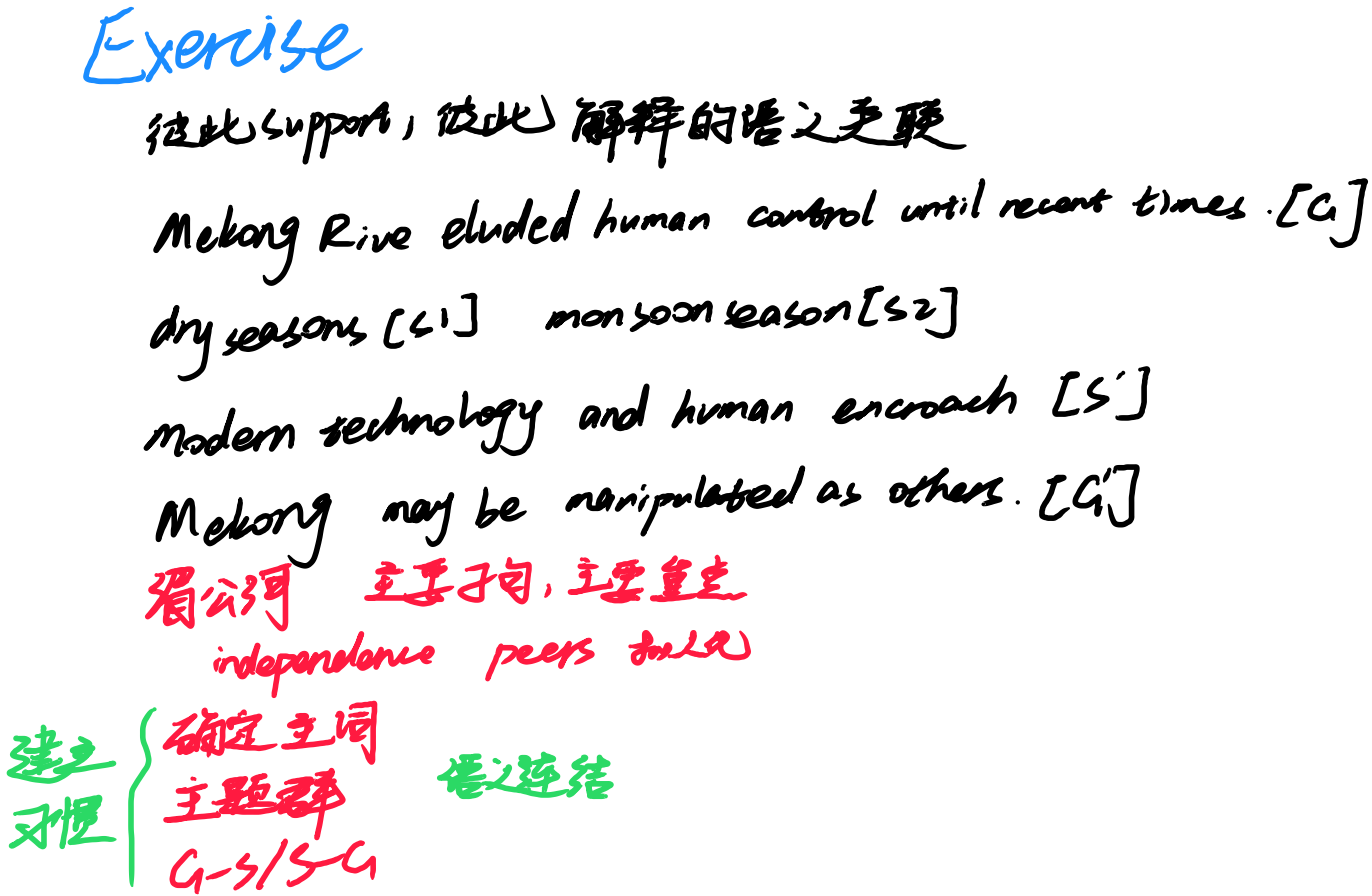 Exercise
彼此support，彼此解释的语义关联
Mekong Rive eluded human control until recent times. [G]
dry seasons [S1] monsoon season [S2]
modern technology and human encroach [S']
Mekong may be manipulated as others. [G']
湄公河 主要子句，主要重点
independence peers
建立习惯
确定主词
主题群
G-S/S-G
语义连结